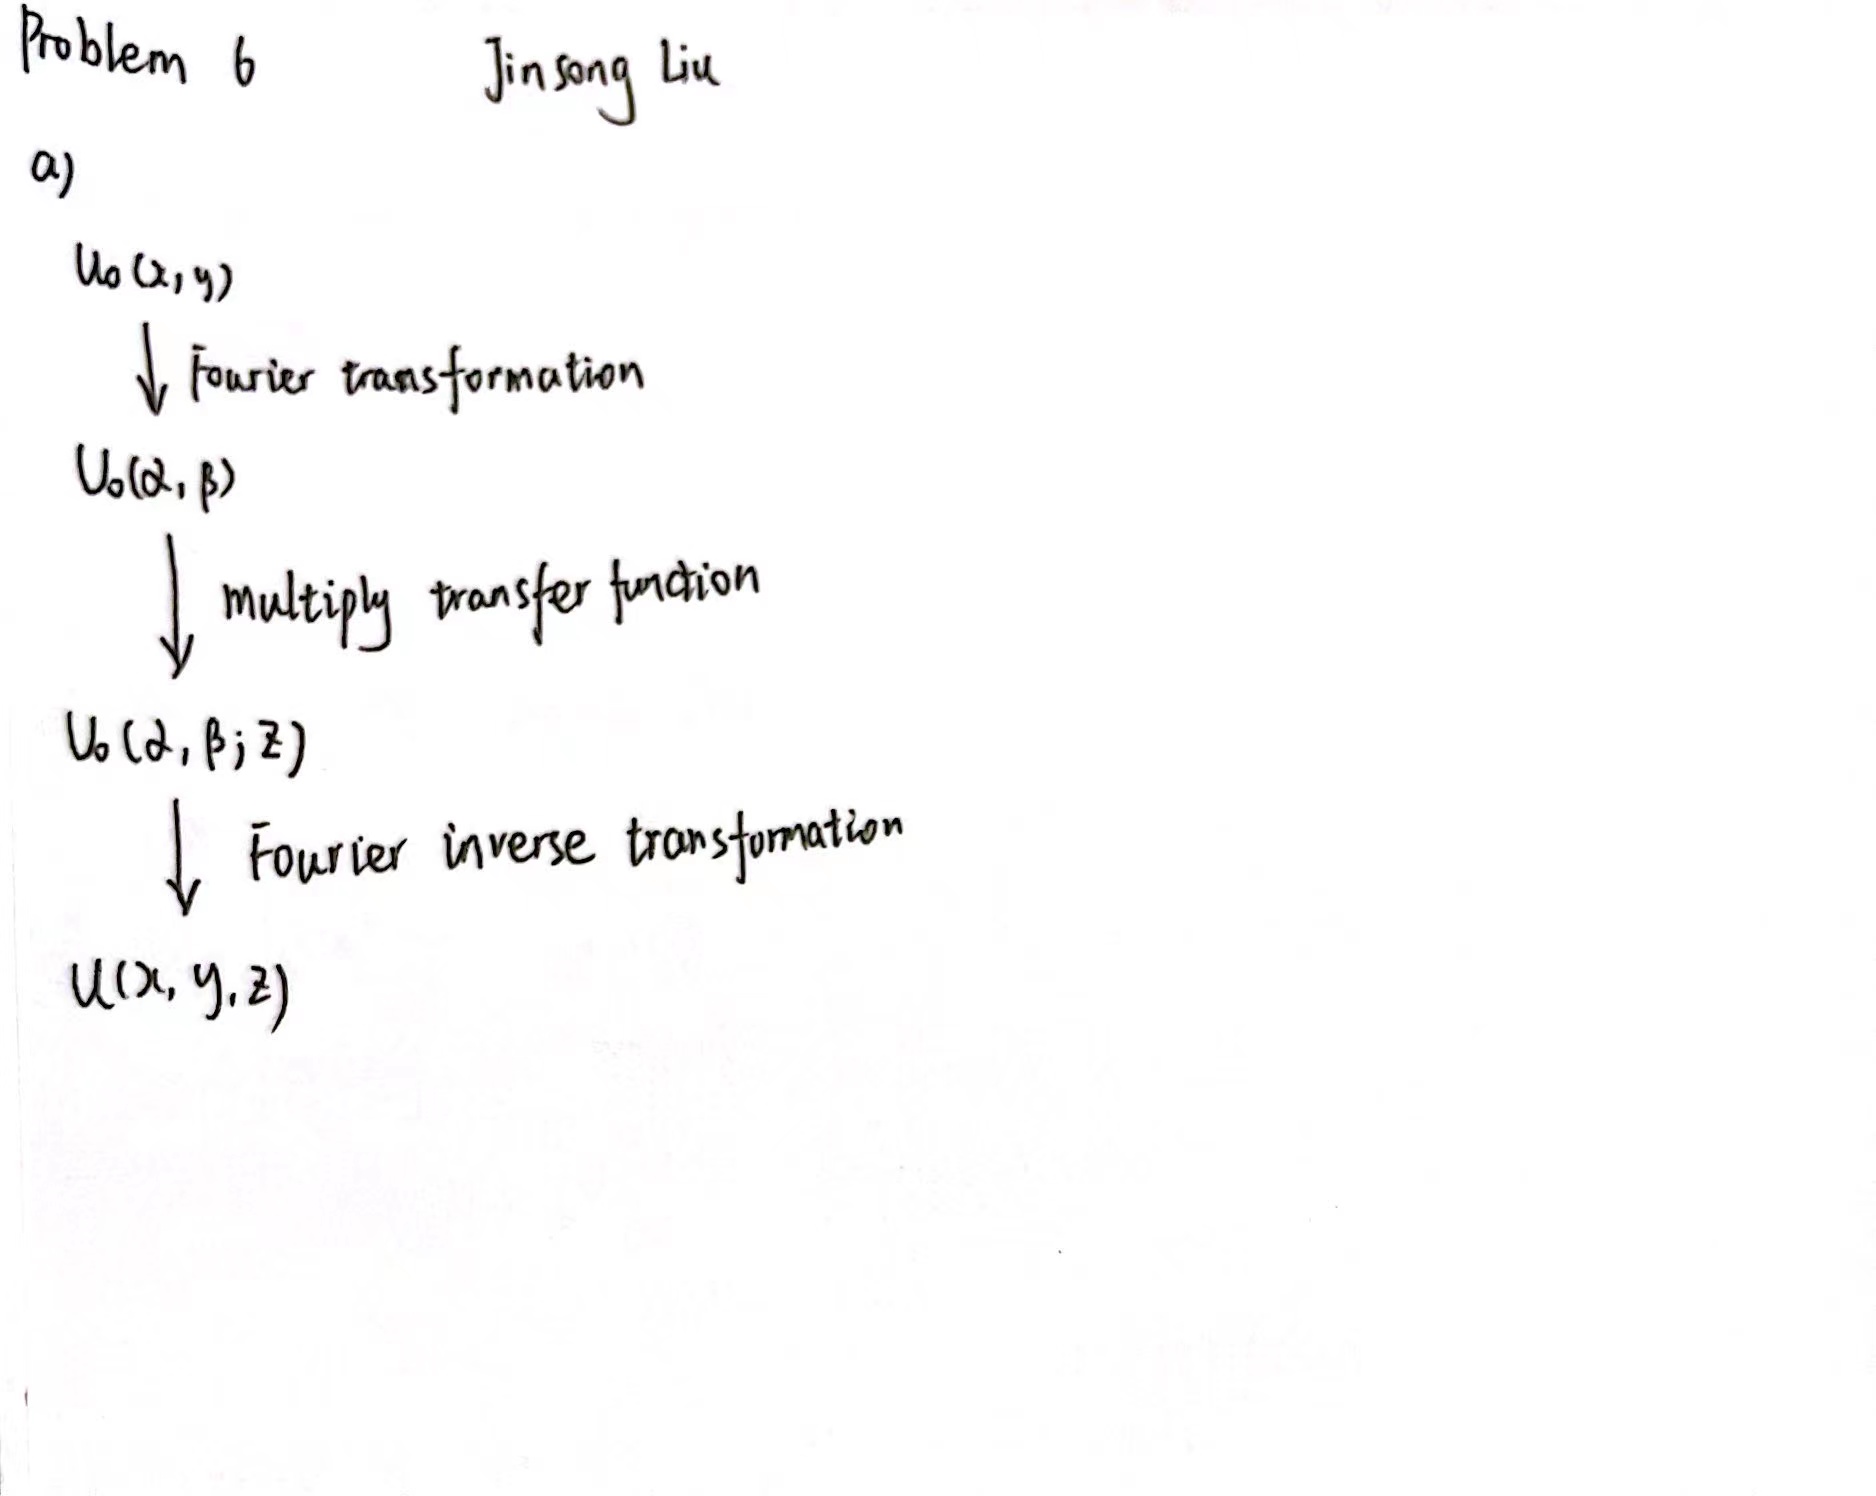 Problem 6 Jinsong Liu
a)
u₀(x, y)
↓ Fourier transformation
U₀(α, β)
↓ multiply transfer function
U₀(α, β; z)
↓ Fourier inverse transformation
u(x, y, z)